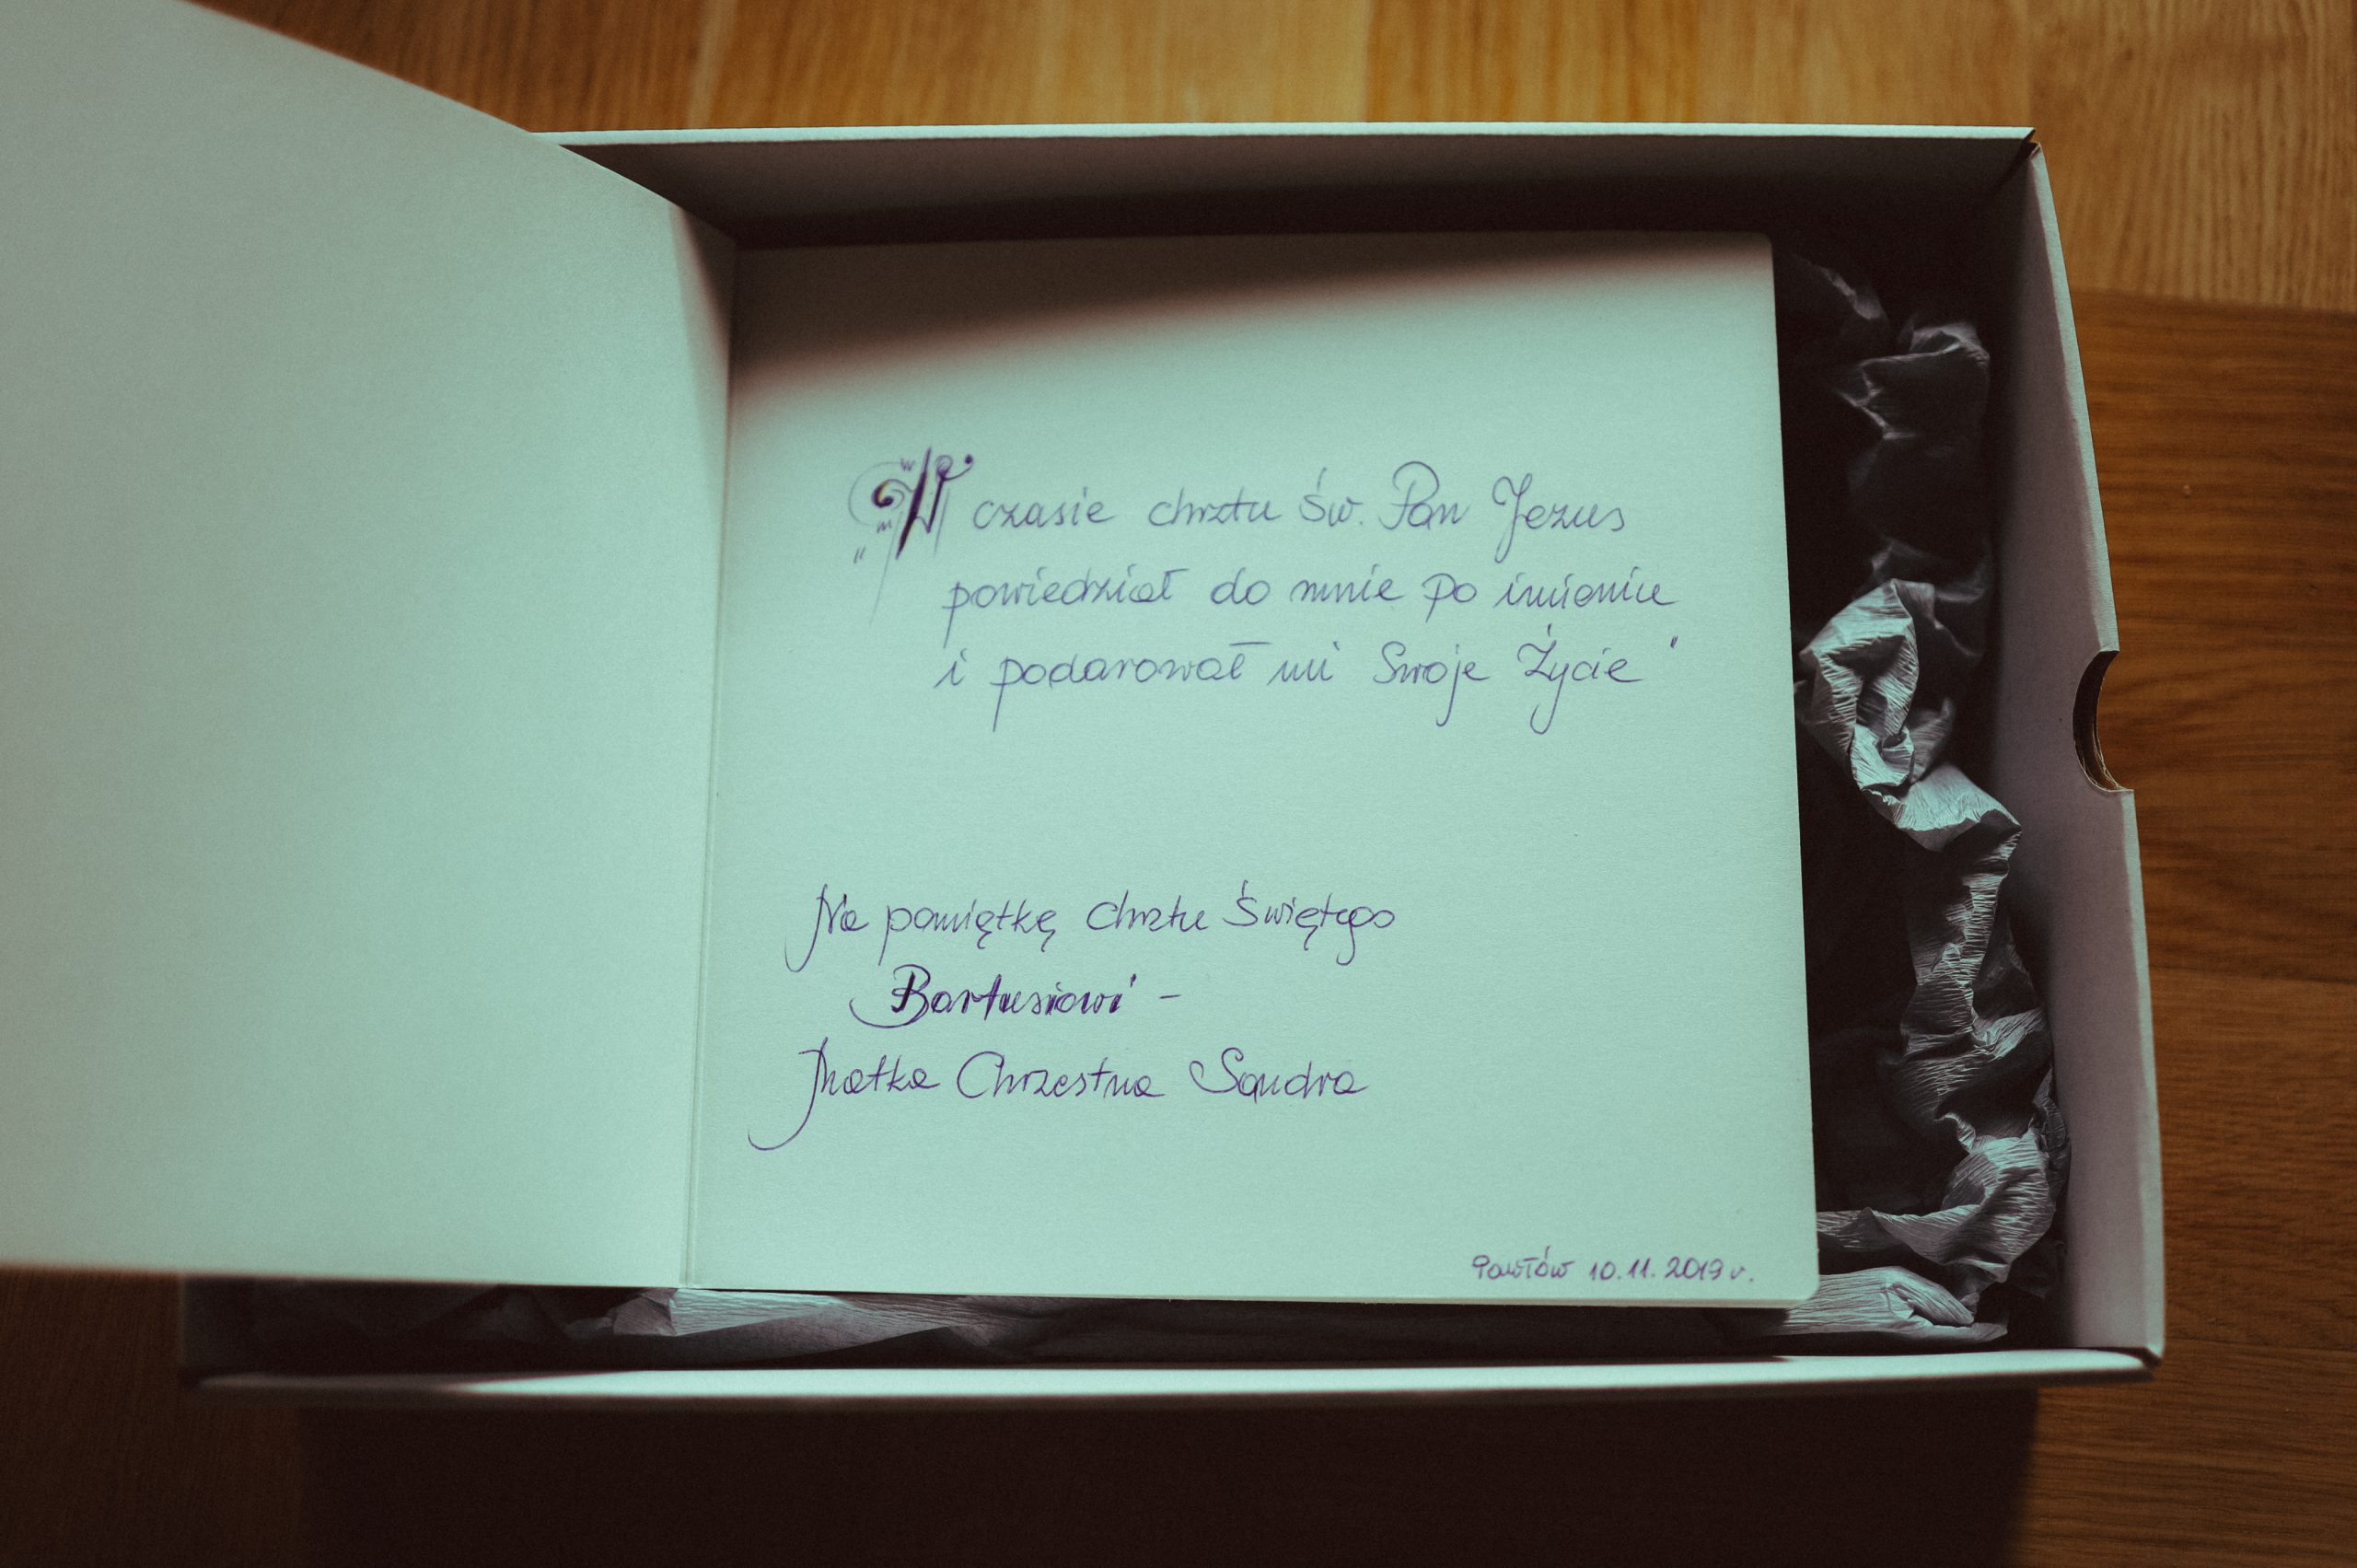 „W czasie chrztu św. Pan Jezus
powiedział do mnie po imieniu
i podarował mi Swoje Życie"
Na pamiątkę Chrztu Świętego
Bartusiowi –
Matka Chrzestna Sandra
Pawłów 10.11.2019 r.